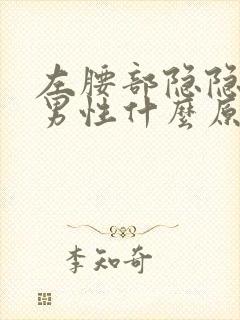 左腰部隐隐
男性什麽原
李知奇